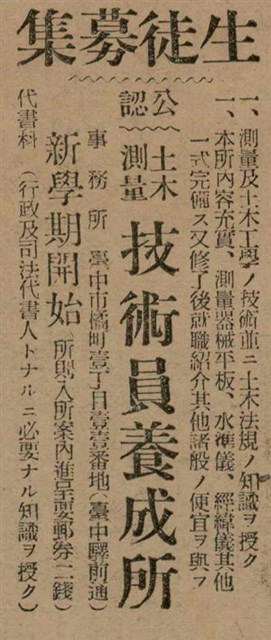 生徒募集
一、測量及土木工學ノ技術並ニ土木法規ノ知識ヲ授ク
一、本所內容充實、測量器械平板、水準儀、經緯儀其他
一式完備ス又修了後就職紹介其他諸般ノ便宜ヲ與フ
公認 土木測量 技術員養成所
事務所 臺中市橘町壹丁目壹壹番地(臺中驛前通)
新學期開始 所則入所案內進呈要郵券二錢
代書科(行政及司法代書人トナルニ必要ナル知識ヲ授ク)